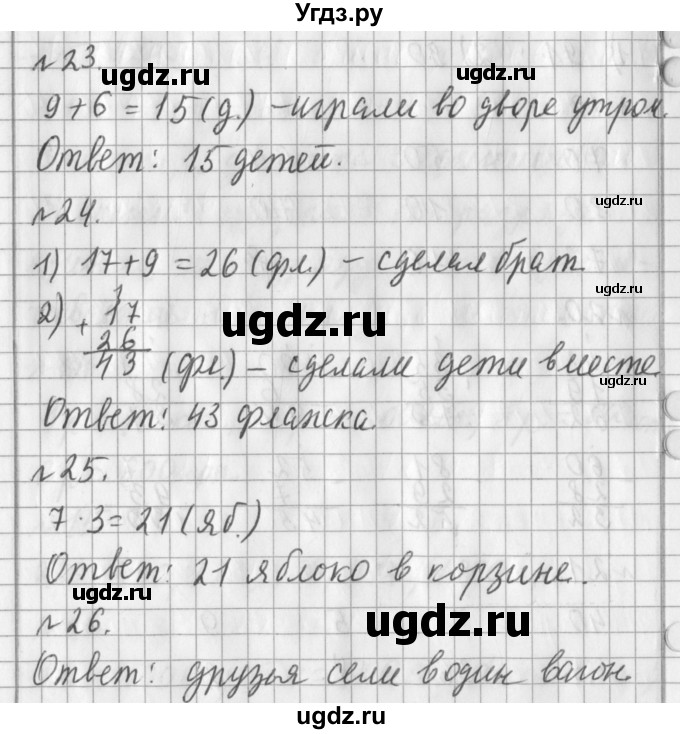 Угдз.ру
№23.
9+6=15(д.) – играли во дворе утром.
Ответ: 15 детей.
№24.
1) 17+9=26 (фл.) – сделал брат
1
2) + 17
26
43 (фл.) – сделали дети вместе.
Ответ: 43 флажка.
№25.
7·3=21(яб.)
Ответ: 21 яблоко в корзине.
№26.
Ответ: друзья сели в один вагон.
ugdz.ru
ugdz.ru
ugdz.ru
ugdz.ru
ugdz.ru
ugdz.ru
ugdz.ru
ugdz.ru
ugdz.ru
ugdz.ru